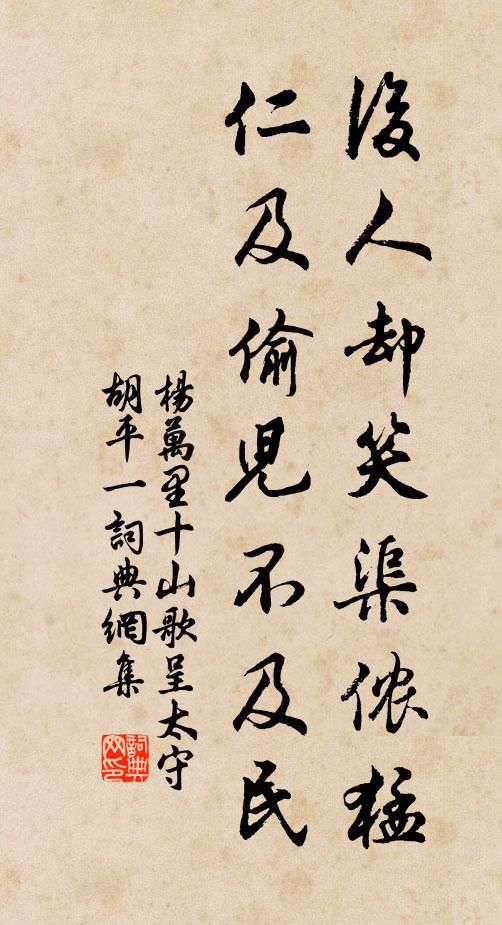 後人却笑渠侬猛
仁及偷兒不及民
楊萬里十山歌呈太守
胡平一詞典網集
詞典网印